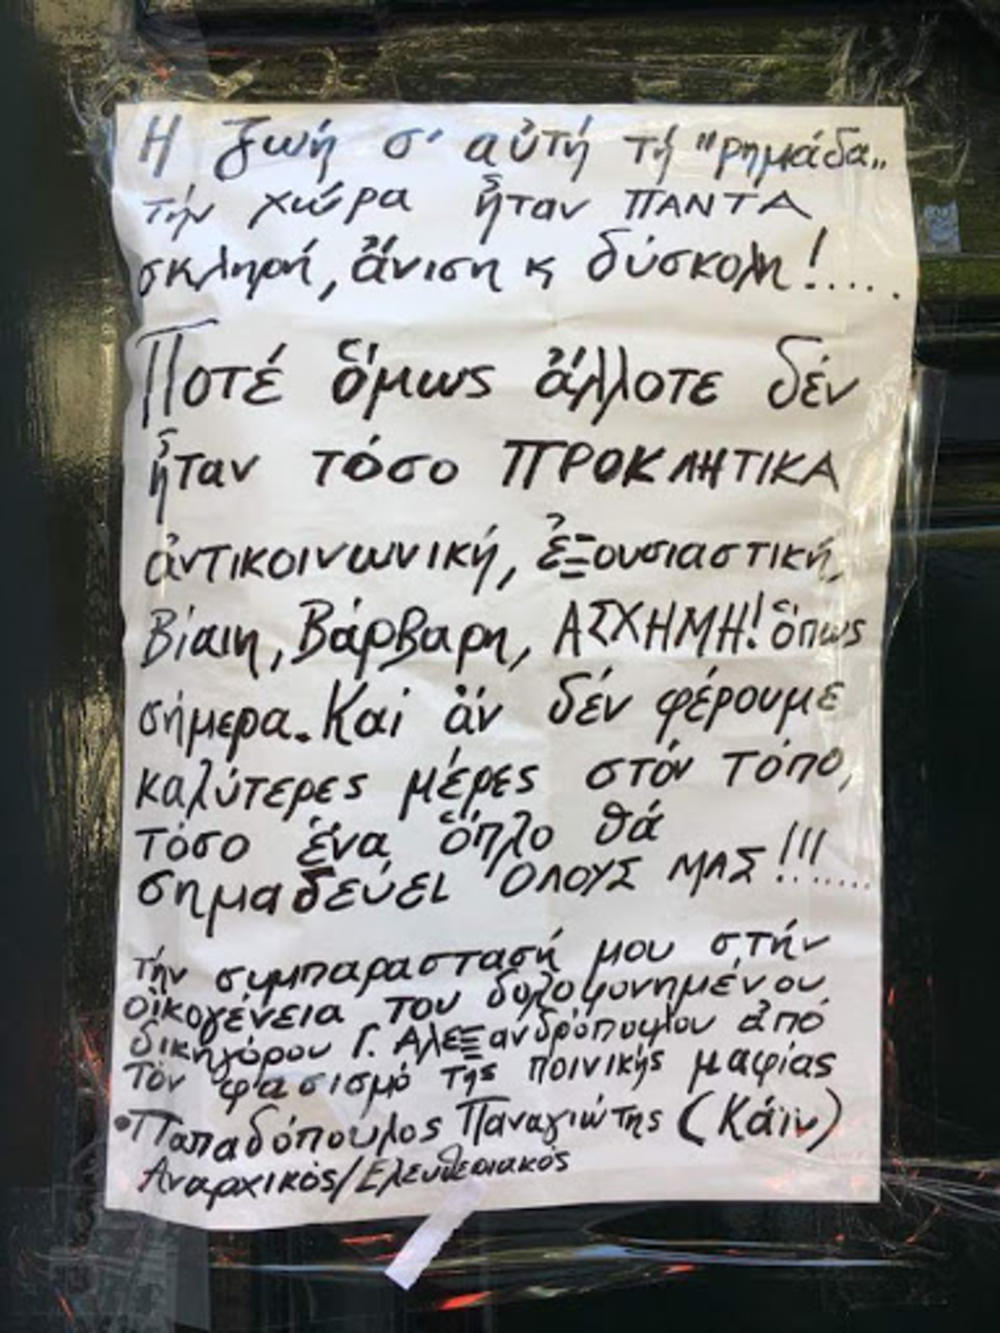 Η ζωή σ' αὐτή τή "ρημάδα„
τήν χώρα ἦταν ΠΑΝΤΑ
σκληρή, ἄνιση κ δύσκολη!....
Ποτέ ὅμως ἄλλοτε δέν
ἦταν τόσο ΠΡΟΚΛΗΤΙΚΑ
ἀντικοινωνική, ἐξουσιαστική,
Βίαιη, Βάρβαρη, ΑΣΧΗΜΗ! ὅπως
σήμερα. Καί ἄν δέν φέρουμε
καλύτερες μέρες στόν τόπο,
τόσο ἕνα ὅπλο θά
σημαδεύει ὉΛΟΥΣ ΜΑΣ!!!......
τήν συμπαραστασή μου στήν
οἰκογένεια του δολοφονημένου
δικηγόρου Γ. Αλεξανδρόπουλου ἀπό
τόν φασισμό της ποινικής μαφίας
•Παπαδόπουλος Παναγιώτης (Κάϊν)
Αναρχικός/Ελευθεριακός